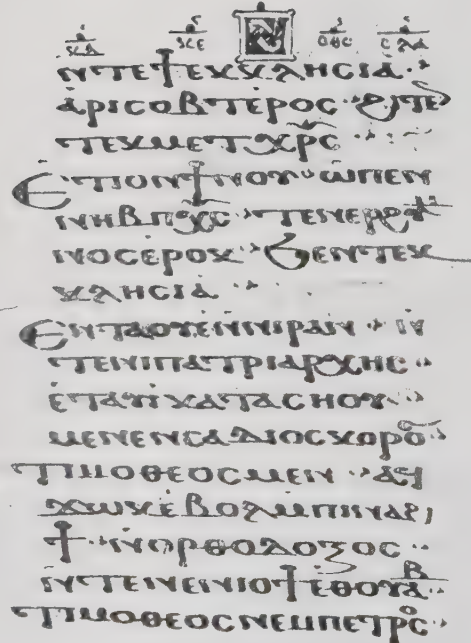 ⲛⲧⲉϯⲉⲕⲕⲗⲏⲥⲓⲁ ··
ⲁⲣⲓⲥⲟⲃⲧⲉⲣⲟⲥ ·· ϩⲓⲧⲉⲛ
ⲧⲉⲕⲙⲉⲧⲭⲣ̅ⲥ̅ ··
ⲉⲧⲓⲟⲛϯⲛⲟⲩ ·· ⲱⲡⲉⲛ
ⲛⲏⲃⲡⲭ̅ⲥ̅ ·· ⲧⲉⲛⲉⲣϩⲩⲙ
ⲛⲟⲥⲉⲣⲟⲕ ·· ϧⲉⲛⲧⲉⲕ
ⲕⲗⲏⲥⲓⲁ ··
ⲉⲛⲧⲁⲟⲩⲉⲛⲛⲓⲣⲁⲛ ·· ⲛ̀
ⲧⲉⲛⲓⲡⲁⲧⲣⲓⲁⲣⲭⲏⲥ ··
ⲉ̀ⲧⲁⲩⲓ̀ⲕⲁⲧⲁⲥⲛⲟⲩ ··
ⲙⲉⲛⲉⲛⲥⲁⲇⲓⲟⲥⲕⲟⲣⲟⲥ ··
ⲧⲓⲙⲟⲑⲉⲟⲥⲙⲉⲛ ·· ⲁϥ
ϫⲱⲕⲉ̀ⲃⲟⲗⲙⲡⲓⲛⲁϩ
ϯ ·· ⲛ̀ⲟⲣⲑⲟⲇⲟⲝⲟⲥ ··
ⲛ̀ⲧⲉⲛⲉⲛⲓⲟϯⲉⲑⲟⲩⲁⲃ
ⲧⲓⲙⲟⲑⲉⲟⲥⲛⲉⲙⲡⲉⲧⲣⲟⲥ ··